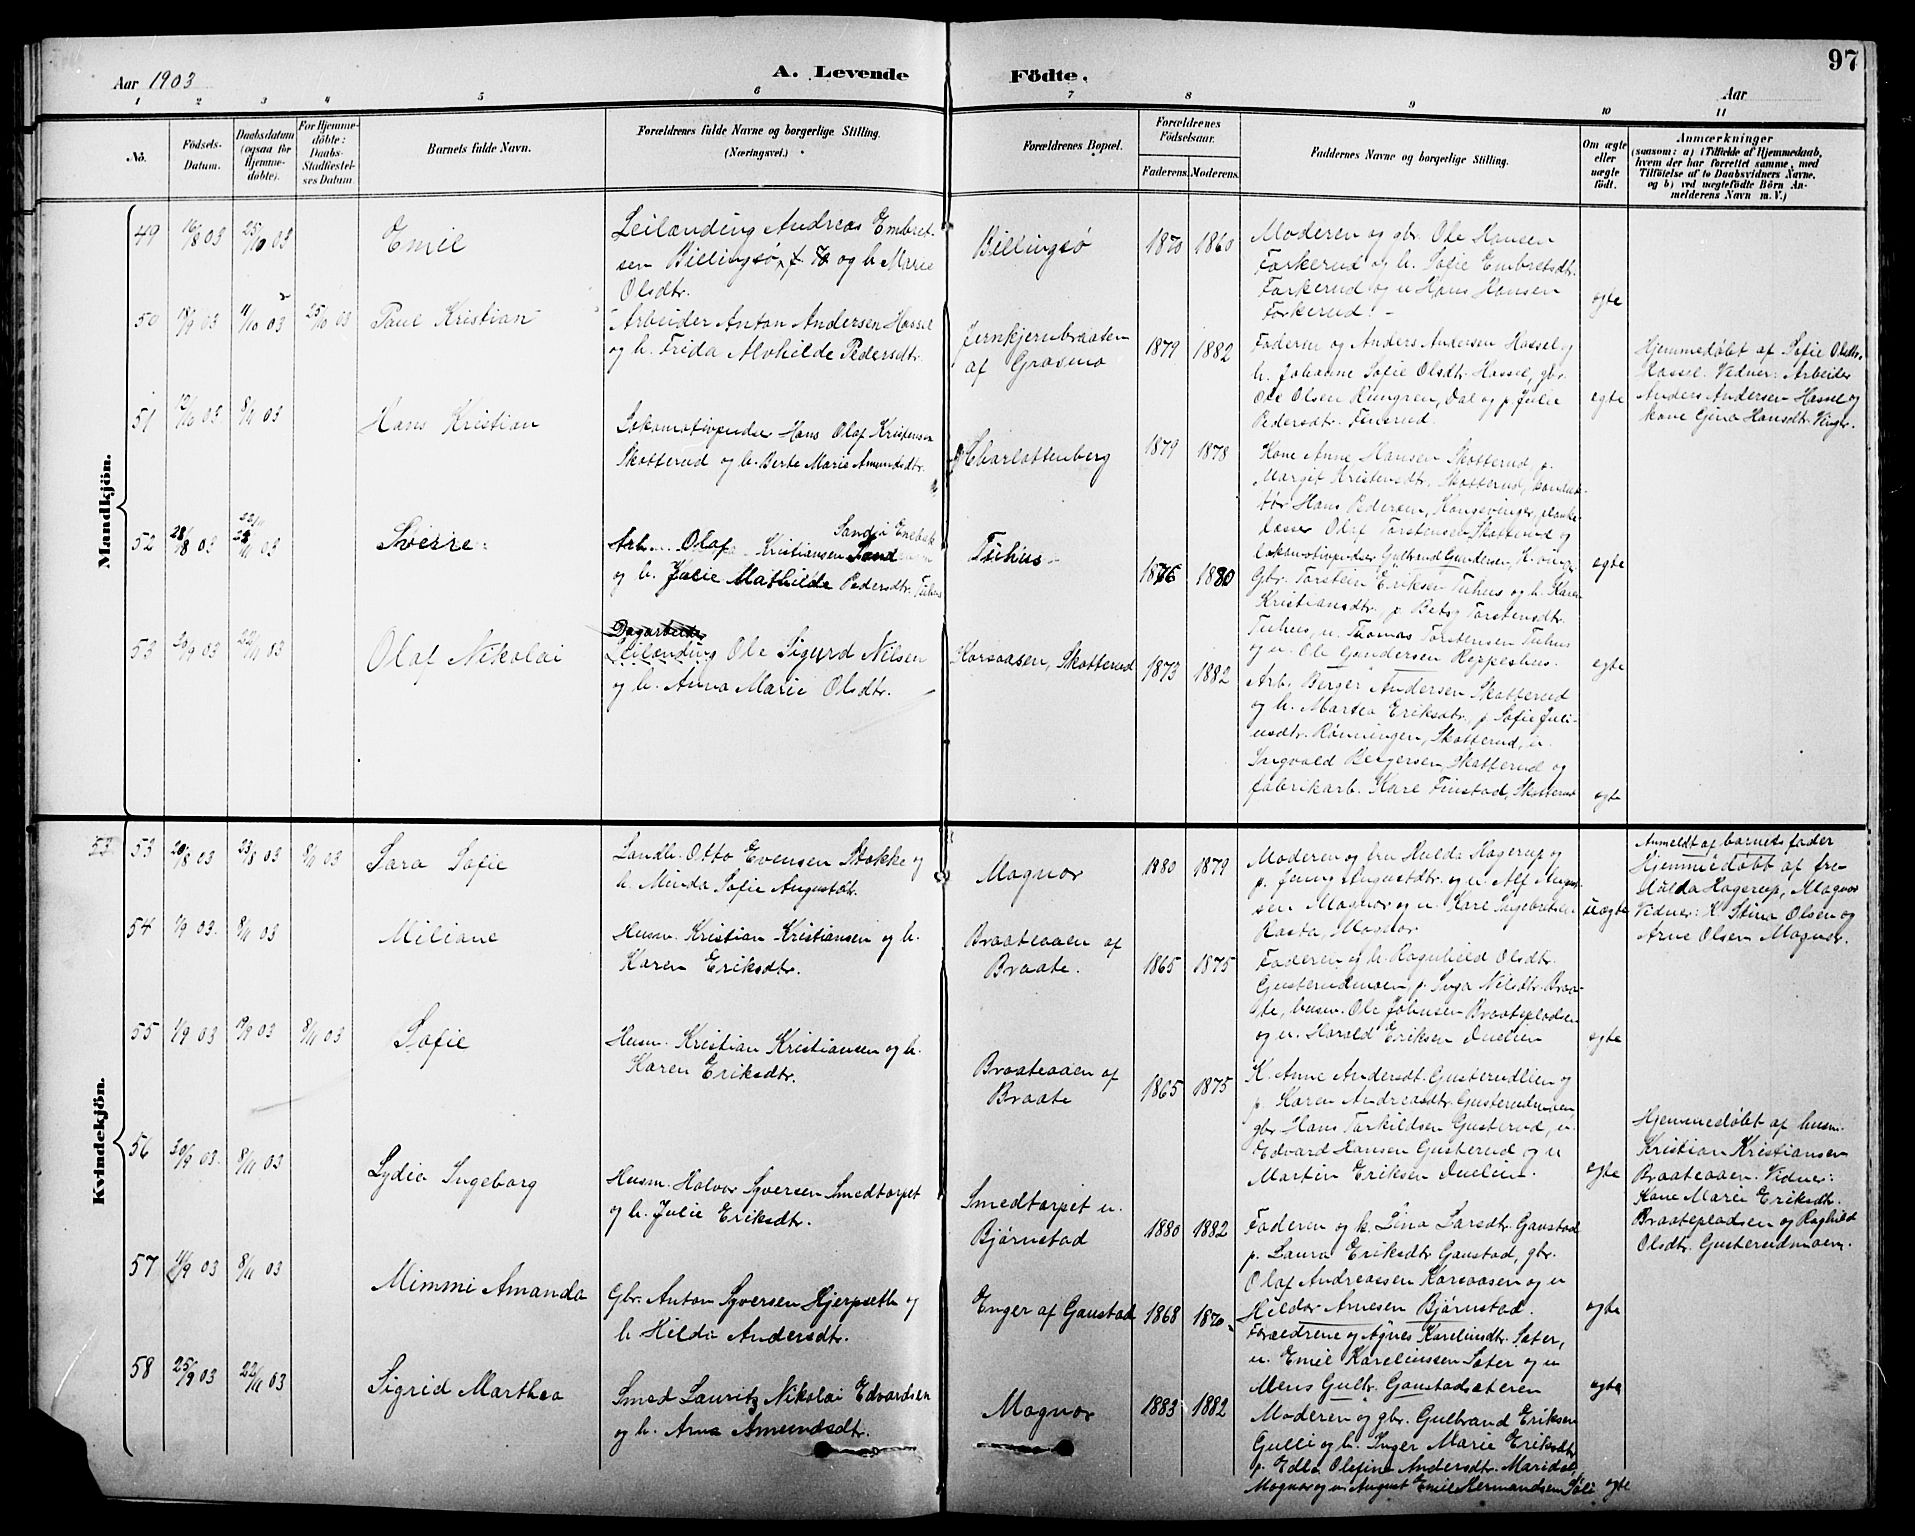 97
Aar 1903
A. Levende
Födte.
Aar
1 2 3 4 5 6 7 8 9 10 11
No.
Födsels-
Datum.
Daabsdatum
(ogsaa for
Hjemme-
döbte).
For Hjemme-
döbte:
Daabs-
Stadfæstel-
ses Datum.
Barnets fulde Navn.
Forældrenes fulde Navne og borgerlige Stilling.
(Næringsvei.)
Forældrenes Bopæl.
Forældrenes
Födselsaar.
Faderens.
Moderens.
Faddernes Navne og borgerlige Stilling.
Om ægte
eller
uægte
födt.
Anmærkninger
(saasom: a) i Tilfælde af Hjemmedaab,
hvem der har forrettet samme, med
Tilföielse af to Daabsvidners Navne,
og b) ved uægtefödte Börn An-
melderens Navn m. V.)
Mandkjön.
49
16/8 03
25/10 03
Emil
Leilænding Andreas Embret-
sen Billingsø, og h. Marie
Olsdtr.
Billingsø
1870
1860
Moderen og gbr. Ole Hansen
Farkerud og h. Sofie Embretsdtr.
Farkerud og u Hans Hansen
Forkerud.
egte
50
18/9 03
11/10 03
25/10 03
Paul Kristian
Arbeider Anton Andersen Hassel
og h. Frida Alvhilde Pedersdtr.
Jernkjernbraaten
af Grasmo
1879
1882
Faderen og Anders Andersen Hassel og
h. Johanne Sofie Olsdtr. Hassel, gbr.
Ole Olsen Rungren, Dal og p. Julie
Pedersdtr.
egte
Hjemmedøbt af Sofie Olsdtr.
Hassel. Vidner: Arbeider
Anders Andersen Hassel og
kone Gina Hansdtr. Vinger.
51
12/10 03
8/11 03
Hans Kristian
Lokomotivpudser Hans Olaf Kristensen
Skotterud og h. Berte Marie Amundsdtr.
Charlottenberg
1879
1878
Kone Anne Hansen Skotterud, p.
Margit Kristensdtr. Skotterud, konduk-
tør Hans Pedersen, Kongsvinger, planke-
læsser Olaf Torstensen Skotterud og
lokomotivpudser Gulbrand Gundersen, K.vinger
egte
52
28/8 03
22/11 03
Sverre
Arb. Olaf Kristiansen Sand
og h. Julie Mathilde Pedersdtr. Tuhus
Tuhus
1876
1880
Gbr. Torstein Eriksen Tuhus og h. Karen
Kristiansdtr. p. Betsy Torstensdtr.
Tuhus, u. Thomas Torstensen Tuhus
og u. Ole Gundersen Reppeshus.
egte
53
20/9 03
22/11 03
Olaf Nikolai
Dagarbeider
Leilending Ole Sigurd Nilsen
og h. Anna Marie Olsdtr.
Korsaasen, Skotterud
1873
1882
Arb. Berger Andersen Skotterud
og h. Martea Eriksdtr., p Sofie Juli-
usdtr. Rønningen, Skotterud, u.
Ingvald Bergersen, Skotterud og
fabrikarb. Kare Finstad, Skotterud
egte
Kvindekjön.
53
20/8 03
23/8 03
8/11 03
Sara Sofie
Landh. Otto Evensen Stokke og
h. Minda Sofie Augustdtr.
Magnor
1880
1879
Moderen og fru Hulda Hagerup og
p. Jenny Augustdtr. og u. Alf Augus-
sen Magnor og u. Kare Ingebretsen
Rasta, Magnor
uegte
Anmeldt af barnets fader
Hjemmedøbt af fru
Hulda Hagerup, Magnor
Vidner: K. Stina Olsen og
Arne Olsen Magnor.
54
1/9 03.
8/11 03
Miliane
Husm. Kristian Kristiansen og h.
Karen Eriksdtr.
Braateaaen af
Braate.
1865
1875
Faderen og h. Ragnhild Olsdtr.
Gusterudmoen, p. Inga Nilsdtr. Braa-
te, husm. Ole Johnsen Braatepladsen
og u. Harald Eriksen Duelien
egte
55
1/9 03
19/9 03
8/11 03
Sofie
Husm. Kristian Kristiansen og h.
Karen Eriksdtr.
Braateaaen af
Braate
1865
1875
K. Anne Andersdt. Gusterudlien og
p. Karen Andreasdtr. Gusterudmoen
gbr. Hans Tarkildsen Gusterud, u.
Edvard Hansen Gusterud og u
Martin Eriksen Duelien.
egte
Hjemmedøbt af husm.
Kristian Kristiansen
Braateaaen. Vidner:
Kone Marie Eriksdtr.
Braatepladsen og Raghild
Olsdtr. Gusterudmoen.
56
30/9 03.
8/11 03
Lydia Ingeborg
Husm. Halvor Syversen Smedtorpet
og h. Julie Eriksdtr.
Smedtorpet u.
Bjørnstad
1880
1882
Faderen og k. Lina Larsdtr. Gaustad
p. Laura Eriksdtr. Gaustad, gbr.
Olaf Andreassen Korsaasen og u
Hildor Arnesen Bjørnstad.
egte
57
11/9 03
8/11 03
Mimmi Amanda
Gbr. Anton Syversen Hjerpseth og
h. Hilda Andersdtr.
Enger af Gaustad
1868
1870
Forældrene og Agnes Karelinsdtr. Sæter,
u. Emil Karelinssen Sæter og u
Mens Gulbr. Gaustadsæteren
egte
58
25/9 03
22/11 03
Sigrid Marthea
Smed Lauritz Nikolai Edvardsen
og h. Anna Amundsdtr.
Magnor
1883
1882
Moderen og gbr. Gulbrand Eriksen
Gulli og h. Inger Marie Eriksdtr.
p. Edla Olefine Andersdtr.
Magnor og u. August Emil Hermandsen
egte